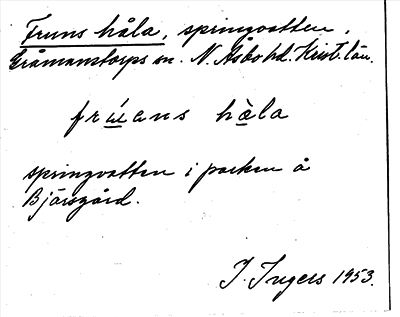 Fruns håla, springvatten,
Gråmanstorps sn. N. Åsbo hd. Krist. län.
håla
springvatten i parken å
Bjärsgård.
I. Ingers 1953.